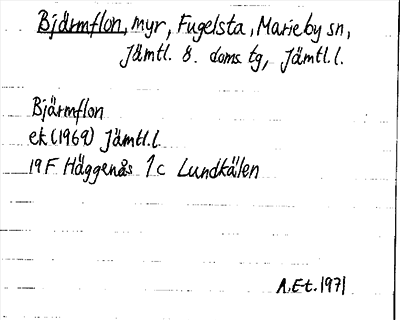 Bjärmflon, myr, Fugelsta, Marieby sn,
Jämtl. ö. doms. tg, Jämtl.l.
Bjärmflon
ek (1969) Jämtl.l.
19F Häggenås 1c Lundkälen
A.Et. 1971